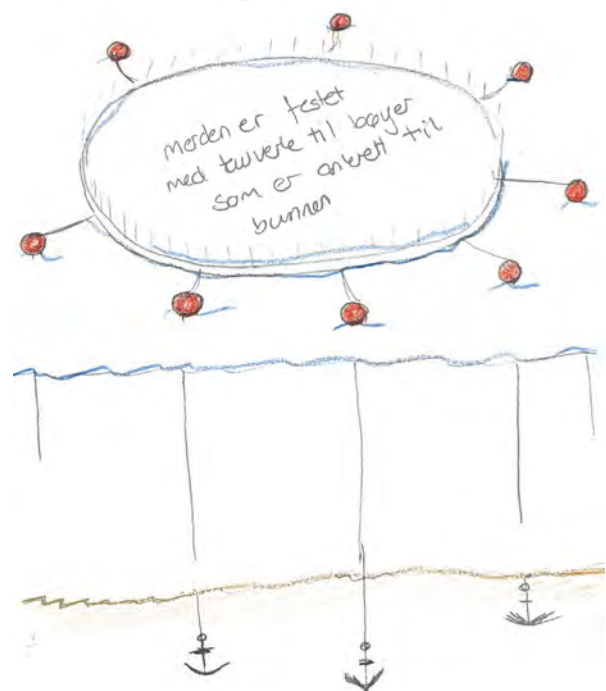 merden er festet
med tauverk til bøyer
som er ankrett til
bunnen